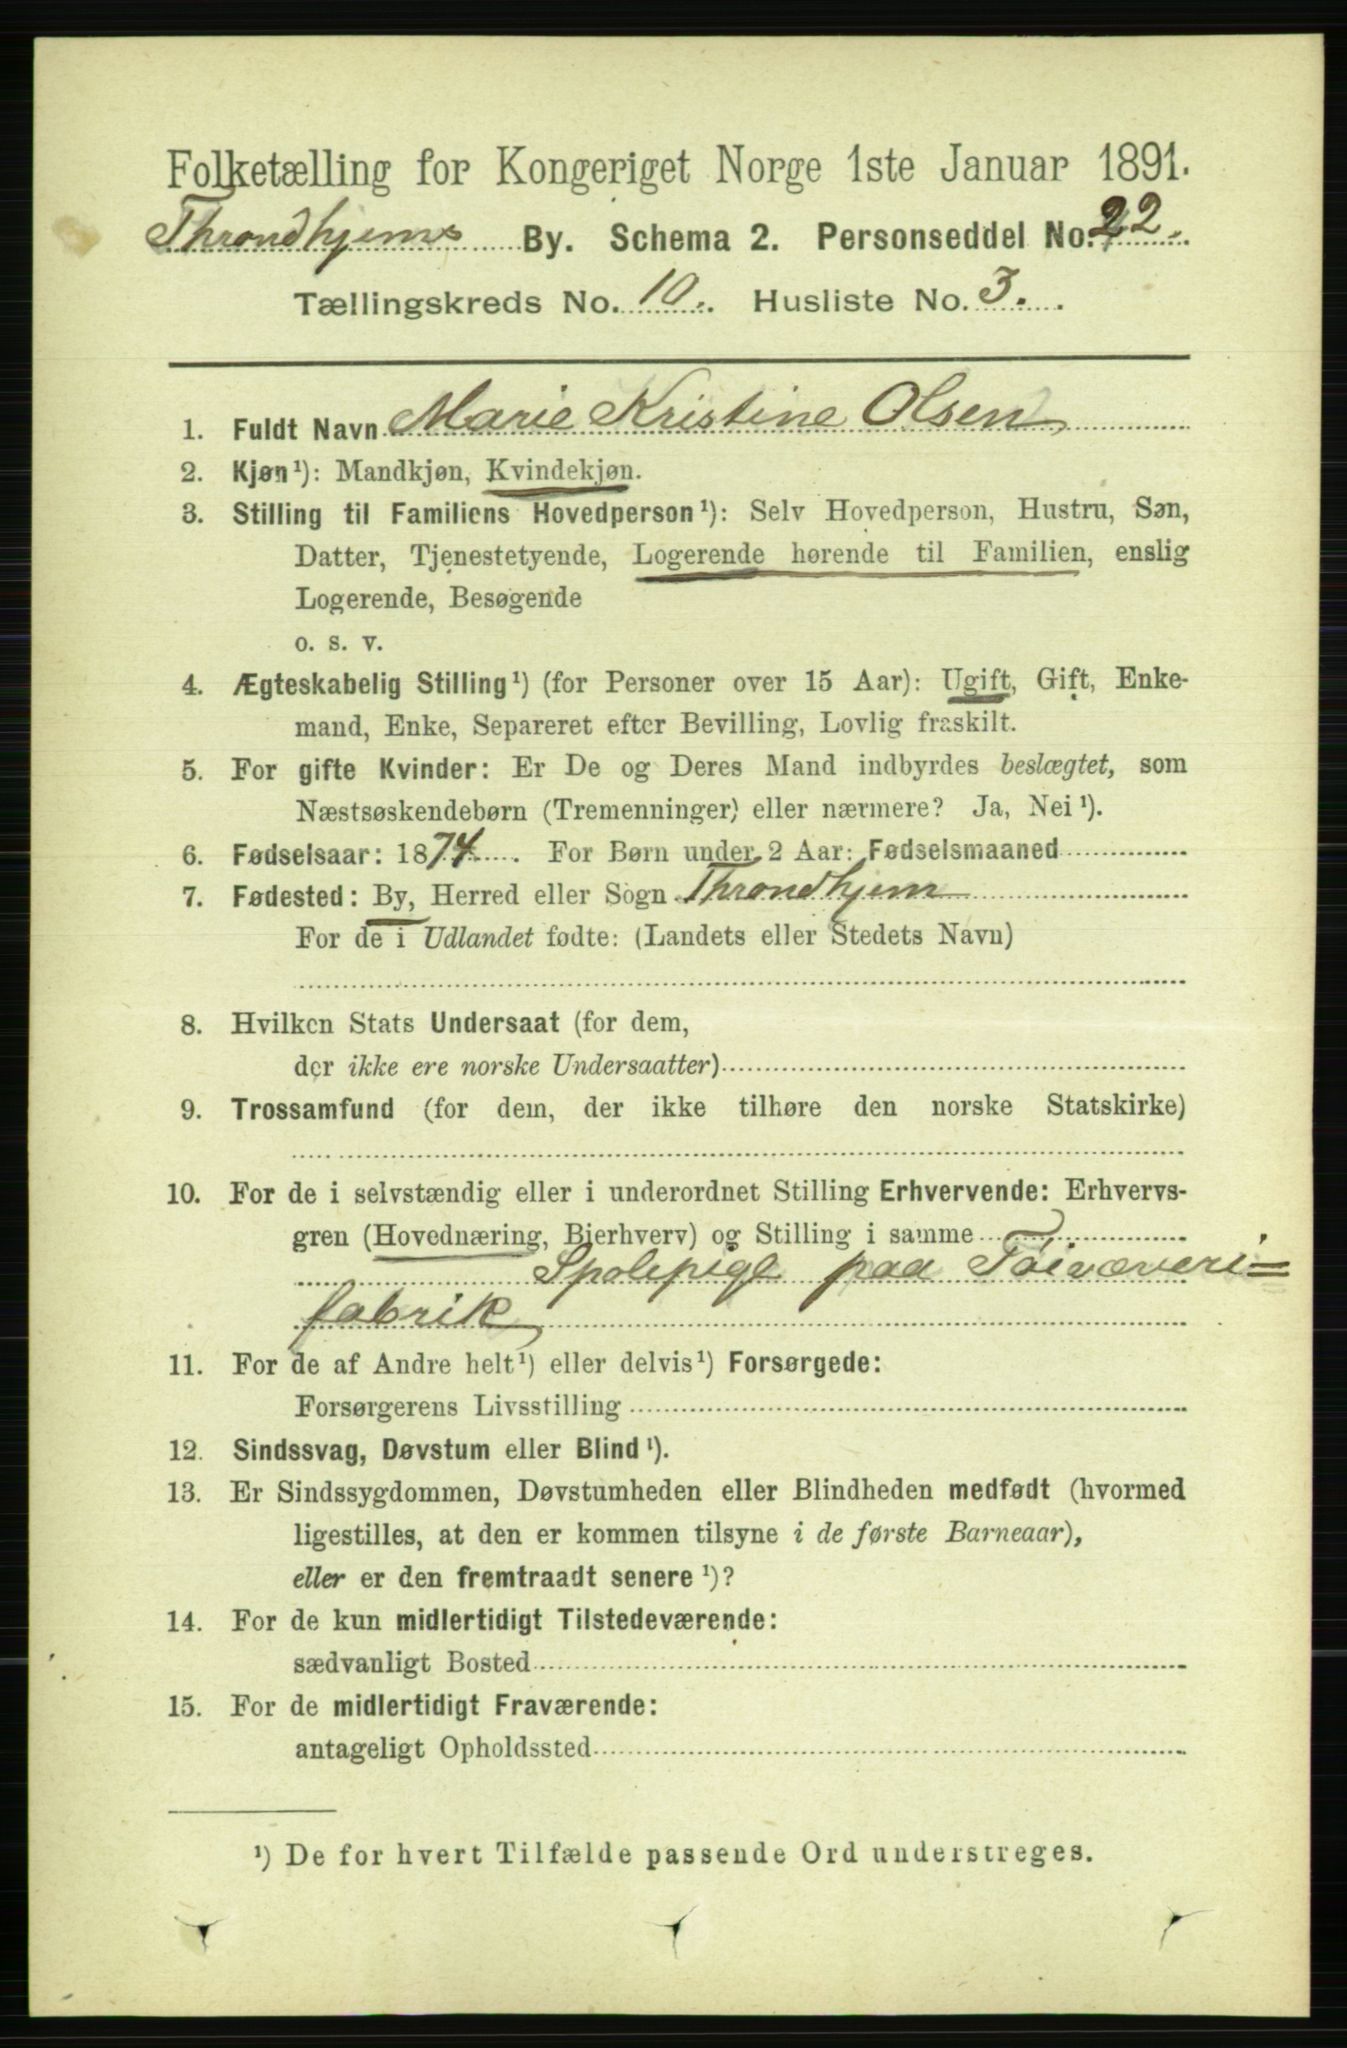 Folketælling for Kongeriget Norge 1ste Januar 1891.
Throndhjems By. Schema 2. Personseddel No. 22.
Tællingskreds No. 10. Husliste No. 3.
1. Fuldt Navn Marie Kristine Olsen
2. Kjøn¹): Mandkjøn, Kvindekjøn.
3. Stilling til Familiens Hovedperson¹): Selv Hovedperson, Hustru, Søn,
Datter, Tjenestetyende, Logerende hørende til Familien, enslig
Logerende, Besøgende
o. s. v.
4. Ægteskabelig Stilling¹) (for Personer over 15 Aar): Ugift, Gift, Enke-
mand, Enke, Separeret efter Bevilling, Lovlig fraskilt.
5. For gifte Kvinder: Er De og Deres Mand indbyrdes beslægtet, som
Næstsøskendebørn (Tremenninger) eller nærmere? Ja, Nei¹).
6. Fødselsaar: 1874. For Børn under 2 Aar: Fødselsmaaned
7. Fødested: By, Herred eller Sogn Throndhjem
For de i Udlandet fødte: (Landets eller Stedets Navn)
8. Hvilken Stats Undersaat (for dem,
der ikke ere norske Undersaatter)
9. Trossamfund (for dem, der ikke tilhøre den norske Statskirke)
10. For de i selvstændig eller i underordnet Stilling Erhvervende: Erhvervs-
gren (Hovednæring, Bierhverv) og Stilling i samme
Spolepige paa Töivæveri=
fabrik
11. For de af Andre helt¹) eller delvis¹) Forsørgede:
Forsørgerens Livsstilling
12. Sindssvag, Døvstum eller Blind¹).
13. Er Sindssygdommen, Døvstumheden eller Blindheden medfødt (hvormed
ligestilles, at den er kommen tilsyne i de første Barneaar),
eller er den fremtraadt senere¹)?
14. For de kun midlertidigt Tilstedeværende:
sædvanligt Bosted
15. For de midlertidigt Fraværende:
antageligt Opholdssted
¹) De for hvert Tilfælde passende Ord understreges.